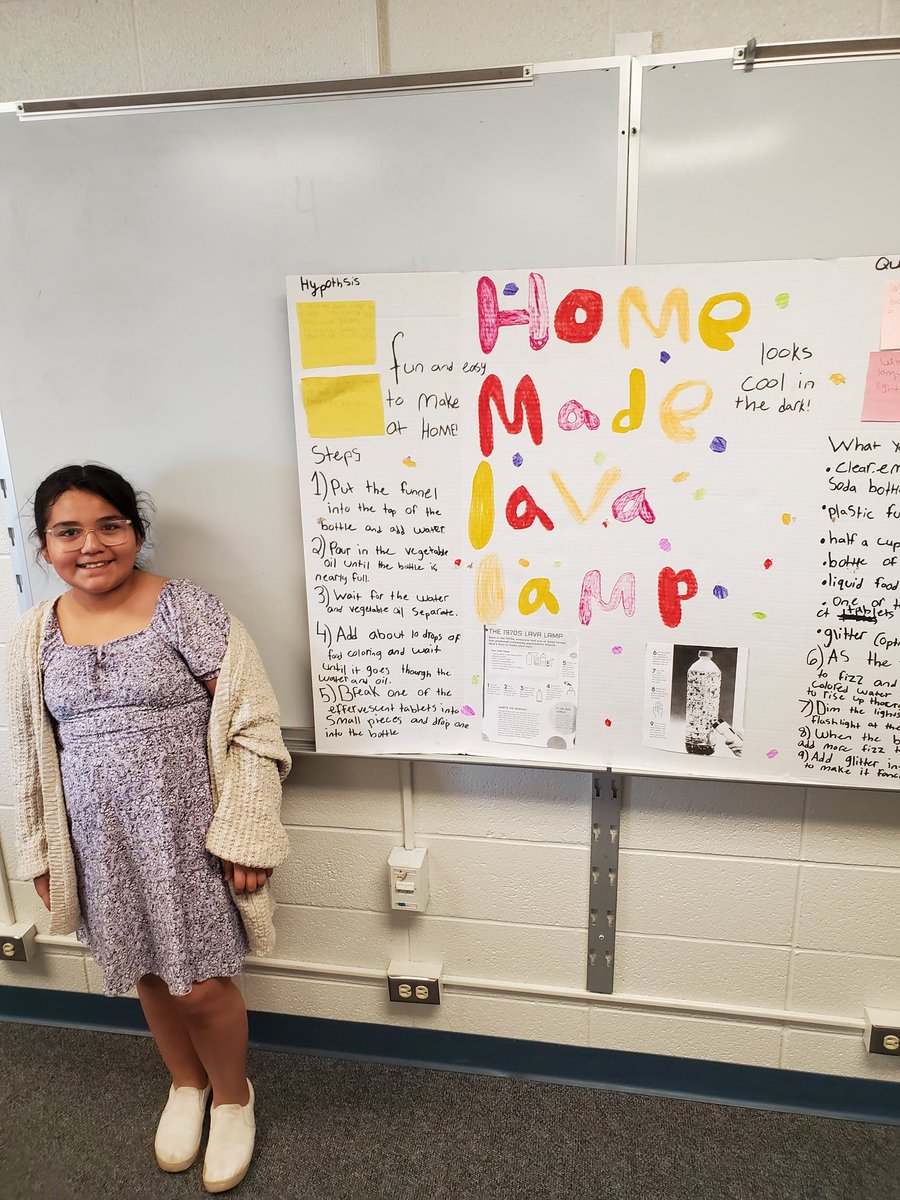 Hypothsis
fun and easy
to make
at HOME!
Steps
1) Put the funnel
into the top of the
bottle and add water.
2) Pour in the vegetable
oil until the bottle is
nearly full.
3) Wait for the water
and vegetable oil separate.
4) Add about 10 drops of
food coloring and wait
until it goes though the
water and oil.
5) Break one of the
effervescent tablets into
small pieces and drop one
into the bottle
Home
Made
lava
lamp
THE 1970S LAVA LAMP
looks
cool in
the dark!
Qu
What Y
• Clear, em
Soda bottl
• plastic fu
• half a cup
• bottle of
• liquid food
• One or t
ct tablets
• glitter (opt
6) As the
to fizz and
colored water
to rise up thoug
7) Dim the lights
flashlight at the
8) When the b
add more fizz t
9) Add glitter in
to make it fanc